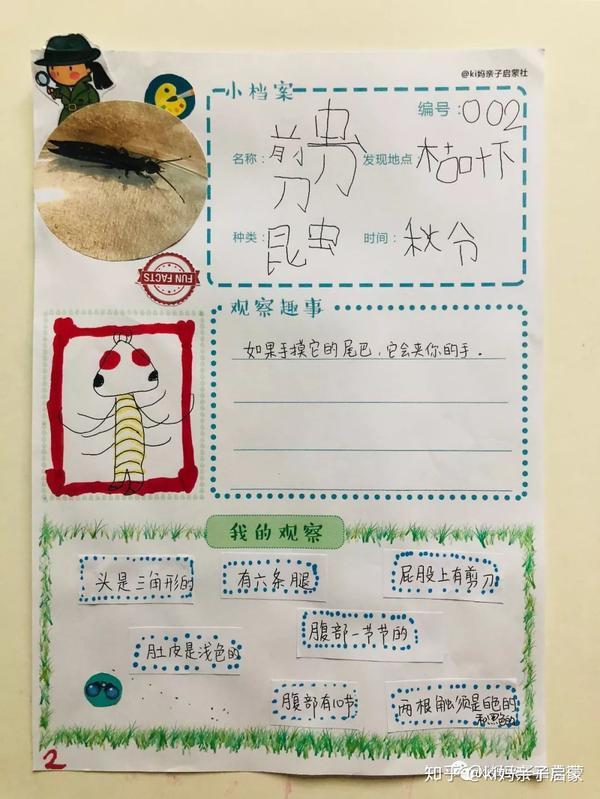 @ki妈亲子启蒙社
小档案
编号:002
名称:剪刀虫
发现地点:枯叶下
种类:昆虫
时间:秋分
FUN FACTS
观察趣事
如果手摸它的尾巴,它会夹你的手.
我的观察
头是三角形的
有六条腿
屁股上有剪刀
肚皮是浅色的
腹部一节节的
腹部有10节
两根触须是白色的
和黑色的
2
知乎 @ki妈亲子启蒙